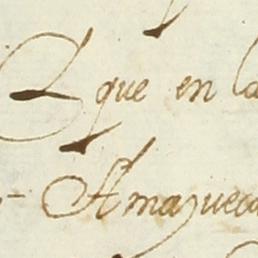 que en la
Amayuca